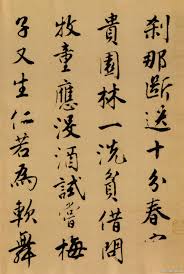 刹那断送十分春富
贵园林一洗贫借问
牧童应没酒试尝梅
子又生仁若为软舞